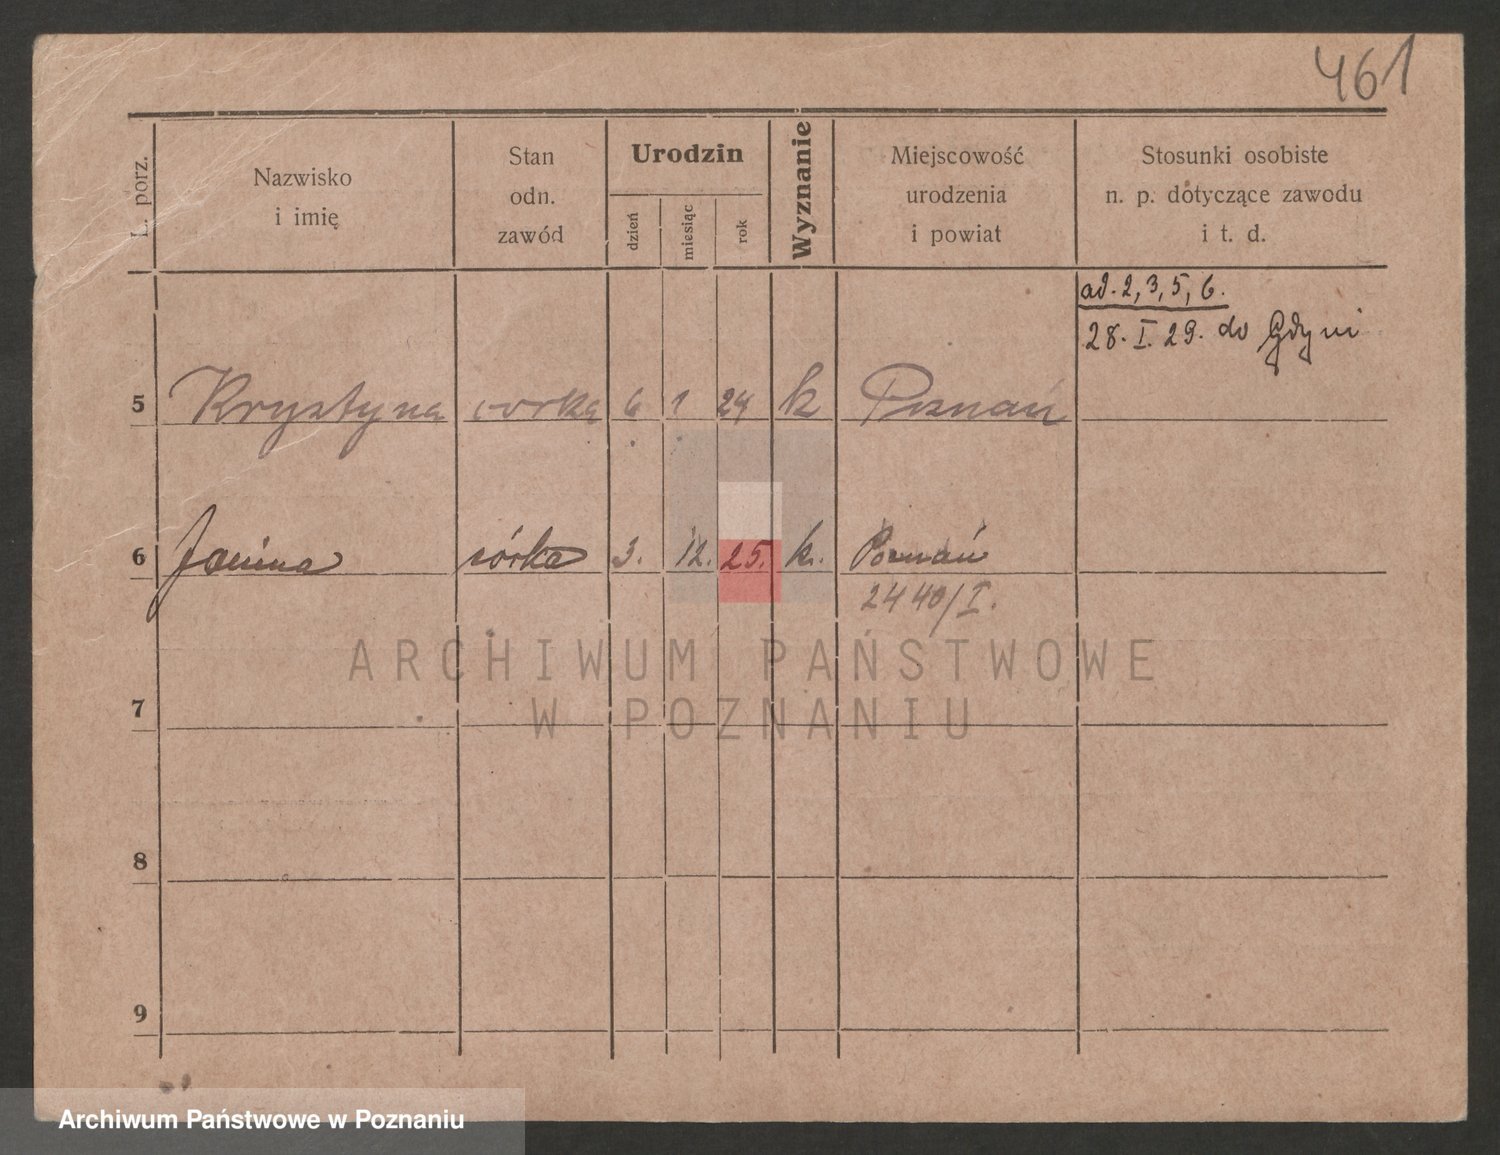 461
L. porz.
Nazwisko
i imię
Stan
odn.
zawód
Urodzin
dzień
miesiąc
rok
Wyznanie
Miejscowość
urodzenia
i powiat
Stosunki osobiste
n. p. dotyczące zawodu
i t. d.
ad. 2, 3, 5, 6.
28. I. 29. do Gdyni
5 Krystyna córka 6 1 24 k Poznań
6 Janina córka 3. 12. 25. k. Poznań
2440/I.
ARCHIWUM PAŃSTWOWE
W POZNANIU
7
8
9
Archiwum Państwowe w Poznaniu